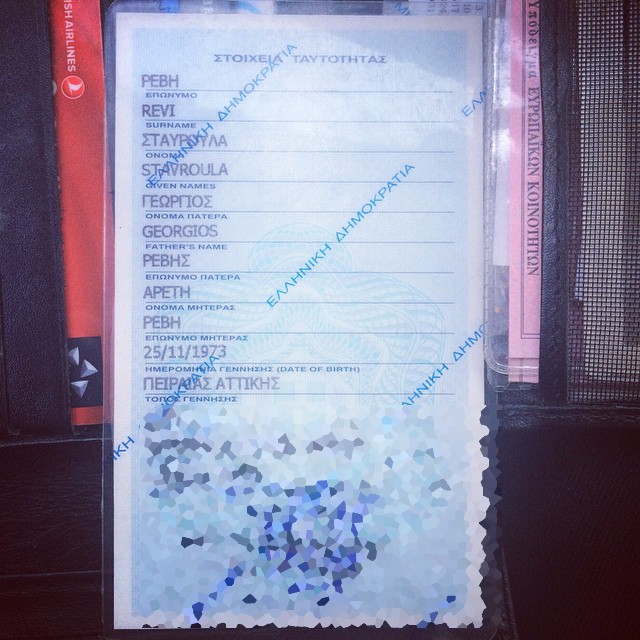 ΣΤΟΙΧΕΙΑ ΤΑΥΤΟΤΗΤΑΣ
ΡΕΒΗ
ΕΠΩΝΥΜΟ
REVI
SURNAME
ΣΤΑΥΡΟΥΛΑ
ΟΝΟΜΑ
STAVROULA
GIVEN NAMES
ΓΕΩΡΓΙΟΣ
ΟΝΟΜΑ ΠΑΤΕΡΑ
GEORGIOS
FATHER'S NAME
ΡΕΒΗΣ
ΕΠΩΝΥΜΟ ΠΑΤΕΡΑ
ΑΡΕΤΗ
ΟΝΟΜΑ ΜΗΤΕΡΑΣ
ΡΕΒΗ
ΕΠΩΝΥΜΟ ΜΗΤΕΡΑΣ
25/11/1973
ΗΜΕΡΟΜΗΝΙΑ ΓΕΝΝΗΣΗΣ (DATE OF BIRTH)
ΠΕΙΡΑΙΑΣ ΑΤΤΙΚΗΣ
ΤΟΠΟΣ ΓΕΝΝΗΣΗΣ
ΕΛΛΗΝΙΚΗ ΔΗΜΟΚΡΑΤΙΑ
ΕΛΛΗΝΙΚΗ ΔΗΜΟΚΡΑΤΙΑ
AIRLINES
Υπόδειγμα ΕΥΡΩΠΑΙΚΩΝ ΚΟΙΝΟΤΗΤΩΝ